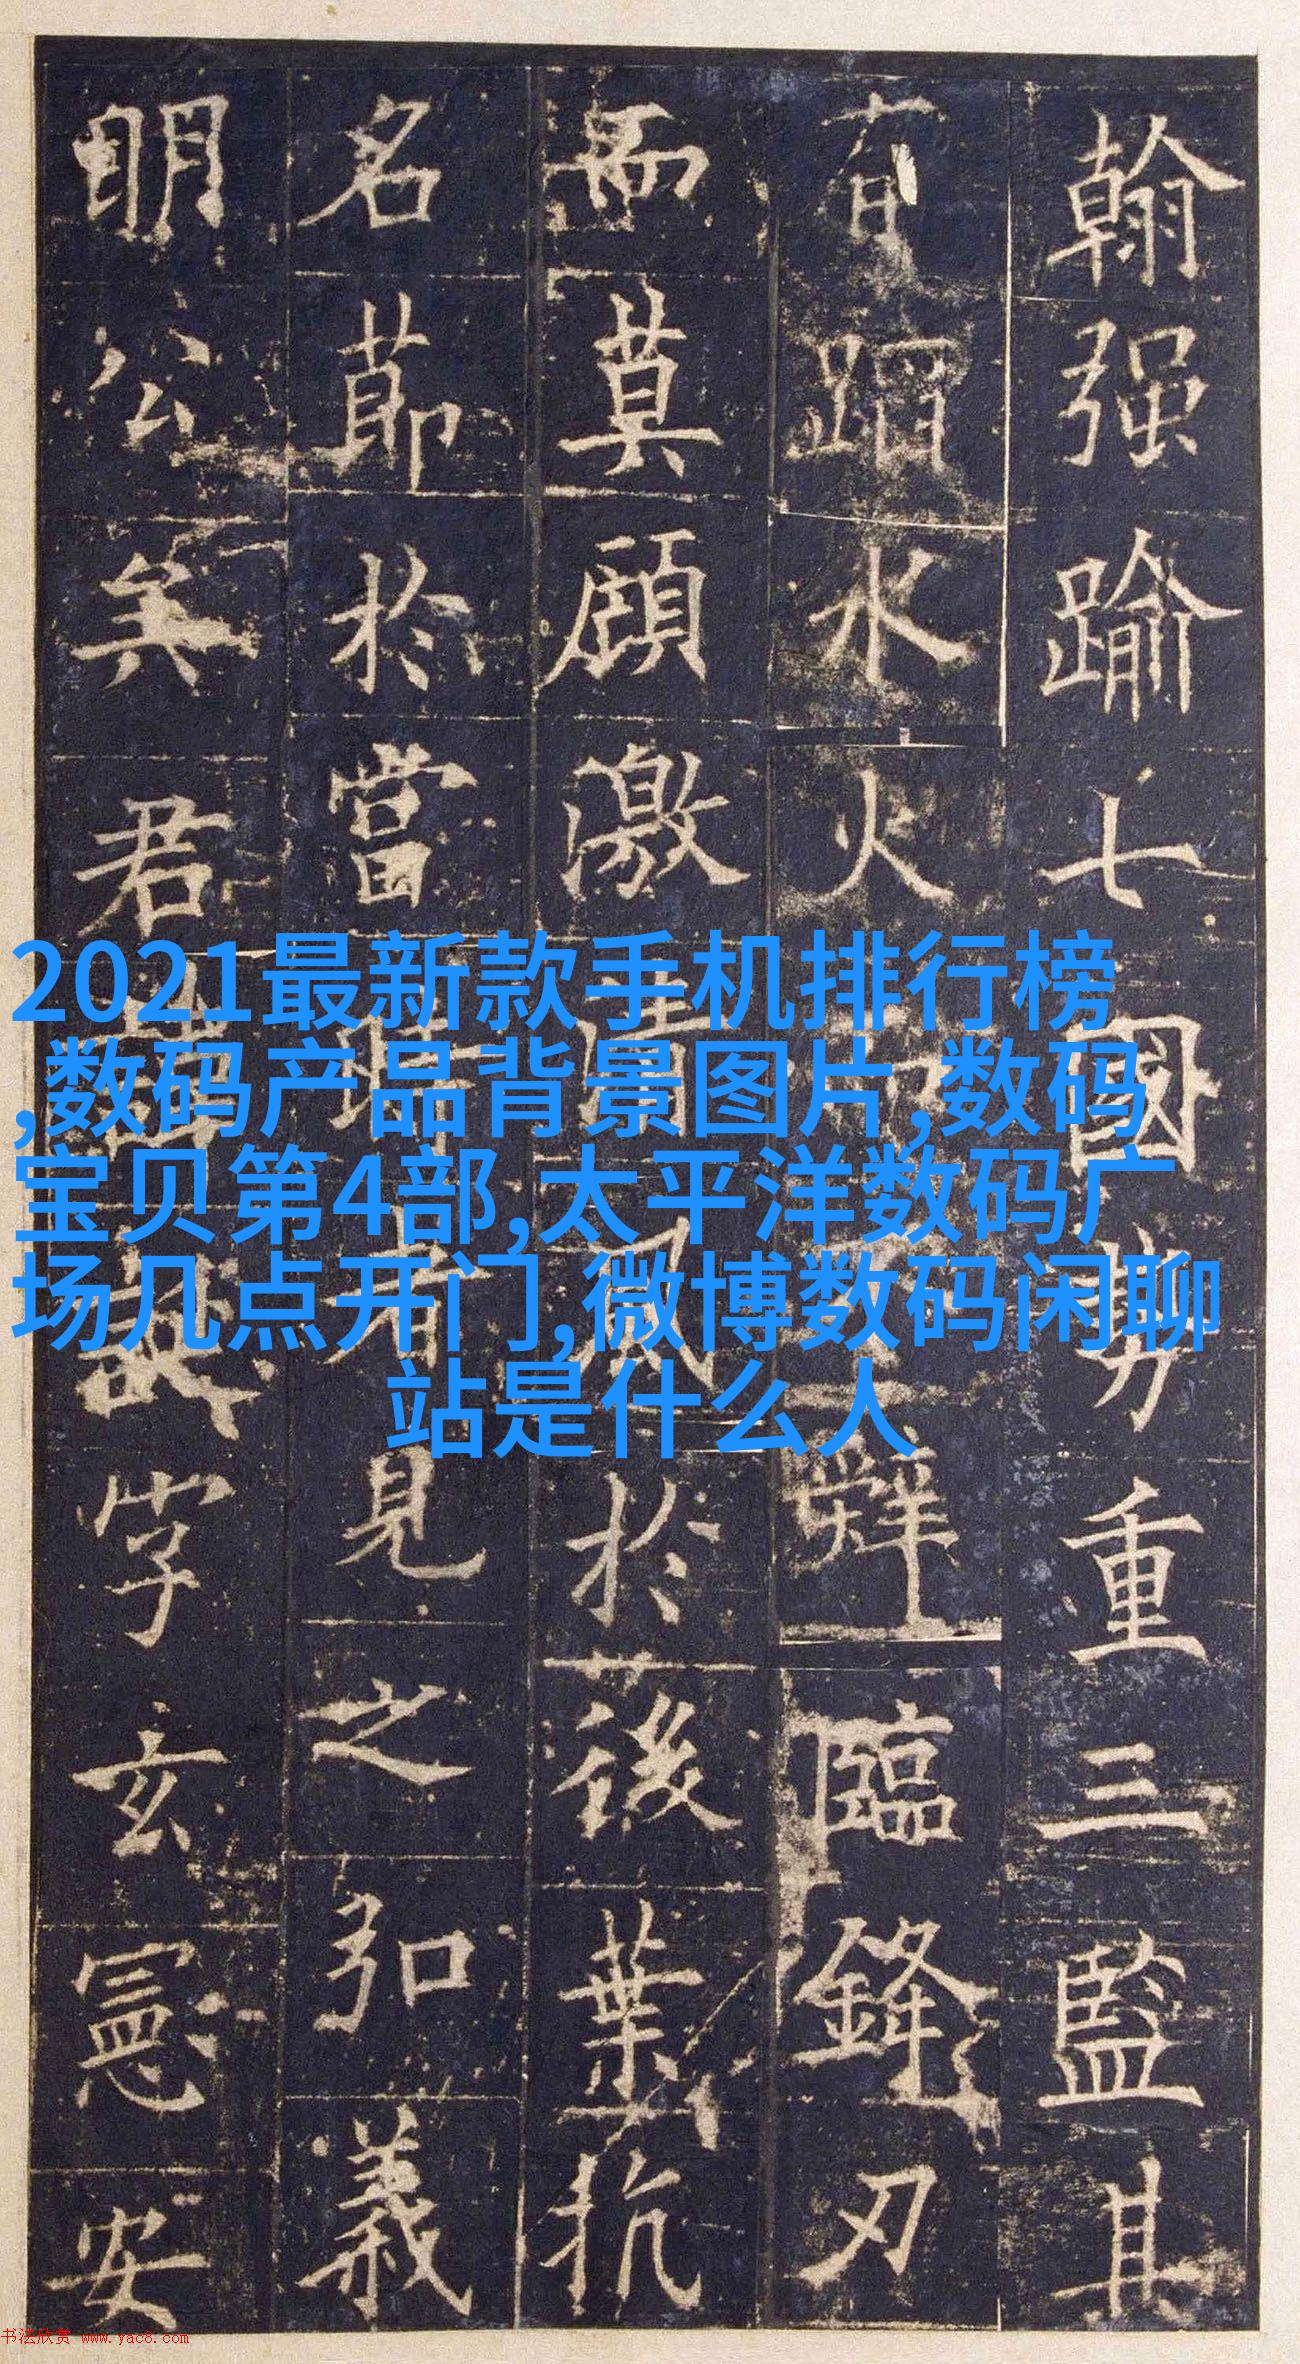 翰强踰七國勢重三監其
有蹈水火而不辭臨鋒刃
而莫顧激清風於後葉抗
名節於當時者見之弘義
明公矣君諱誕字玄憲安
2021最新款手机排行榜
,数码产品背景图片,数码
宝贝第4部,太平洋数码广
场几点开门,微博数码闲聊
站是什么人
书法欣赏 www.yac8.com